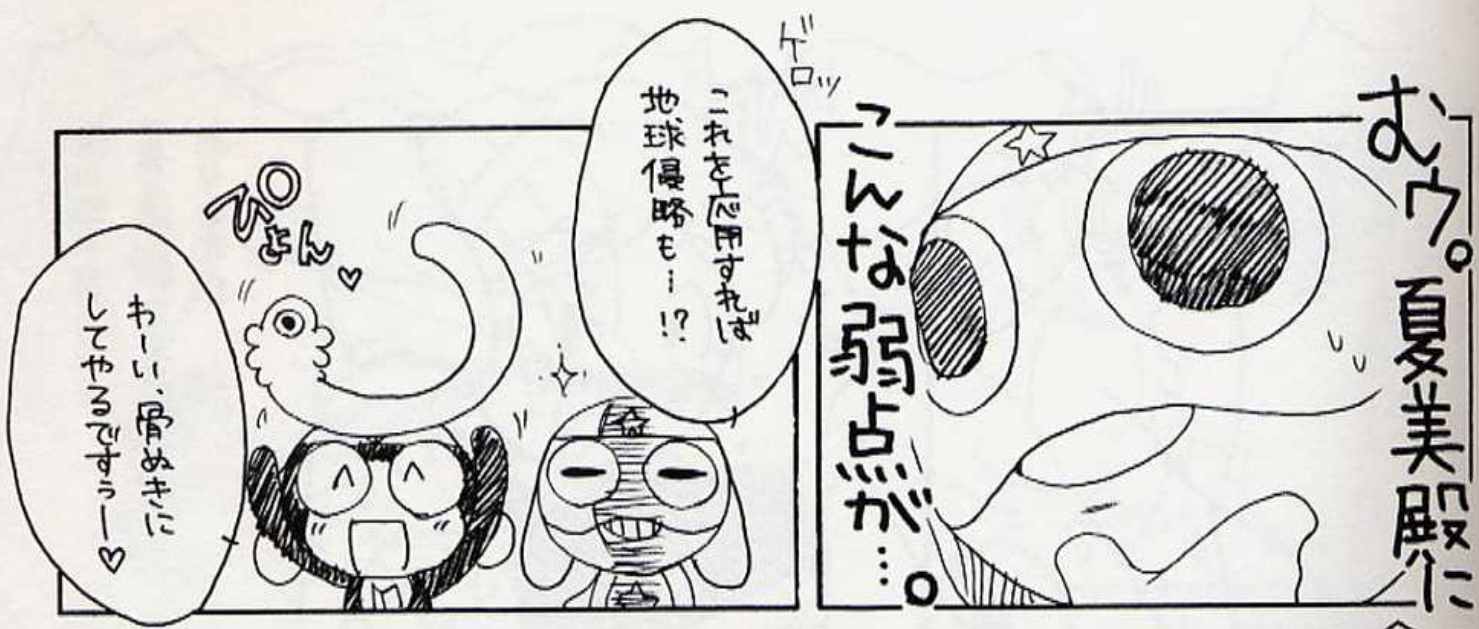 むゥ。夏美殿に
こんな弱点が…。
ゲロッ
これを応用すれば
地球侵略も…!?
ぴょん♡
わーい、骨ぬきに
してやるですぅー♡